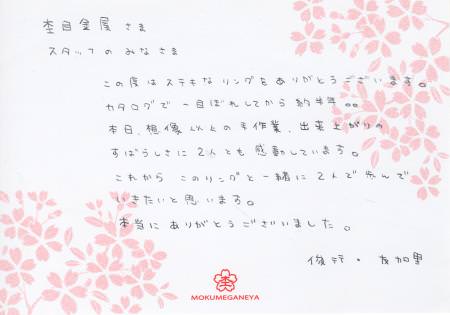 杢目金屋さま
スタッフのみなさま
この度はステキなリングをありがとうございます。
カタログで一目ぼれしてから約半年。。
本日、想像以上の手作業、出来上がりの
すばらしさに2人とも感動しています。
これからこのリングと一緒に2人で歩んで
いきたいと思います。
本当にありがとうございました。
俊行・友加里
MOKUMEGANEYA